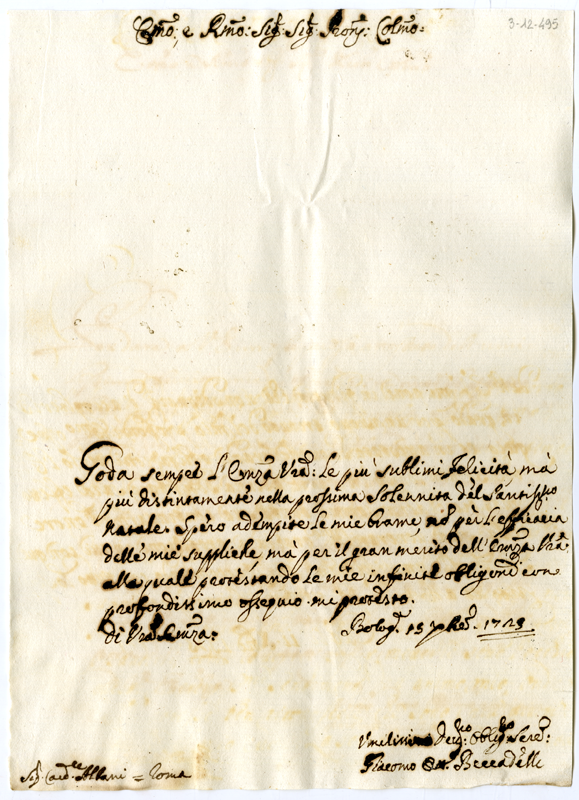 3-12-495
Emo: e Rmo: Sig: Sig: Prõn: Colmo:
Goda sempre l'Emza Vrã: le più sublimi felicità mà
più distintamente nella prossima Solennità del Santissimo
Natale. Spero adempite le mie brame, nõ per l'efficacia
delle mie suppliche, mà per il gran merito dell'Emza Vrã
alla quale protestando le mie infinite obligõni con
profondissimo ossequio mi protesto.
di Vrã Emza:
Bolog: 15 Xbre: 1723.
Umilissimo Devmo Obligmo Serv:
Giacomo Beccadelli
Sig: Card.le Albani = Roma